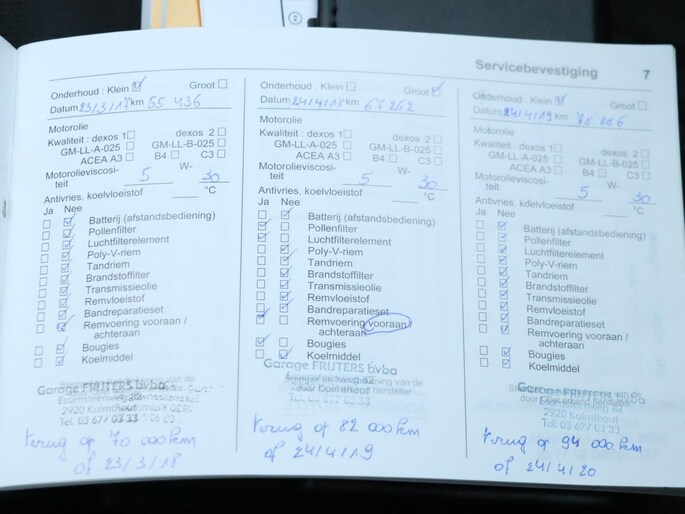 Servicebevestiging 7
Onderhoud : Klein Groot
Datum 23/3/17 km 55 436
Motorolie
Kwaliteit : dexos 1 dexos 2
GM-LL-A-025 GM-LL-B-025
ACEA A3 B4 C3
Motorolieviscosi- W-
teit 5 30
Antivries, koelvloeistof °C
Ja Nee
Batterij (afstandsbediening)
Pollenfilter
Luchtfilterelement
Poly-V-riem
Tandriem
Brandstoffilter
Transmissieolie
Remvloeistof
Bandreparatieset
Remvoering vooraan /
achteraan
Bougies
Koelmiddel
Garage FRIJTERS bvba
2920 Kalmthout
Tel. 03 677 03 33
terug op 70 000 km
of 23/3/18
Onderhoud : Klein Groot
Datum 24/4/18 km
Motorolie
Kwaliteit : dexos 1 dexos 2
GM-LL-A-025 GM-LL-B-025
ACEA A3 B4 C3
Motorolieviscosi- W-
teit 5 30
Antivries, koelvloeistof °C
Ja Nee
Batterij (afstandsbediening)
Pollenfilter
Luchtfilterelement
Poly-V-riem
Tandriem
Brandstoffilter
Transmissieolie
Remvloeistof
Bandreparatieset
Remvoering vooraan /
achteraan
Bougies
Koelmiddel
Garage FRIJTERS bvba
Tel. 03 677 03 33
terug op 82 000 km
of 24/4/19
Onderhoud : Klein Groot
Datum 24/4/19 km
Motorolie
Kwaliteit : dexos 1 dexos 2
GM-LL-A-025 GM-LL-B-025
ACEA A3 B4 C3
Motorolieviscosi- W-
teit 5 30
Antivries, koelvloeistof °C
Ja Nee
Batterij (afstandsbediening)
Pollenfilter
Luchtfilterelement
Poly-V-riem
Tandriem
Brandstoffilter
Transmissieolie
Remvloeistof
Bandreparatieset
Remvoering vooraan /
achteraan
Bougies
Koelmiddel
2920 Kalmthout
Tel. 03 677 03 33
terug op 94 000 km
of 24/4/20